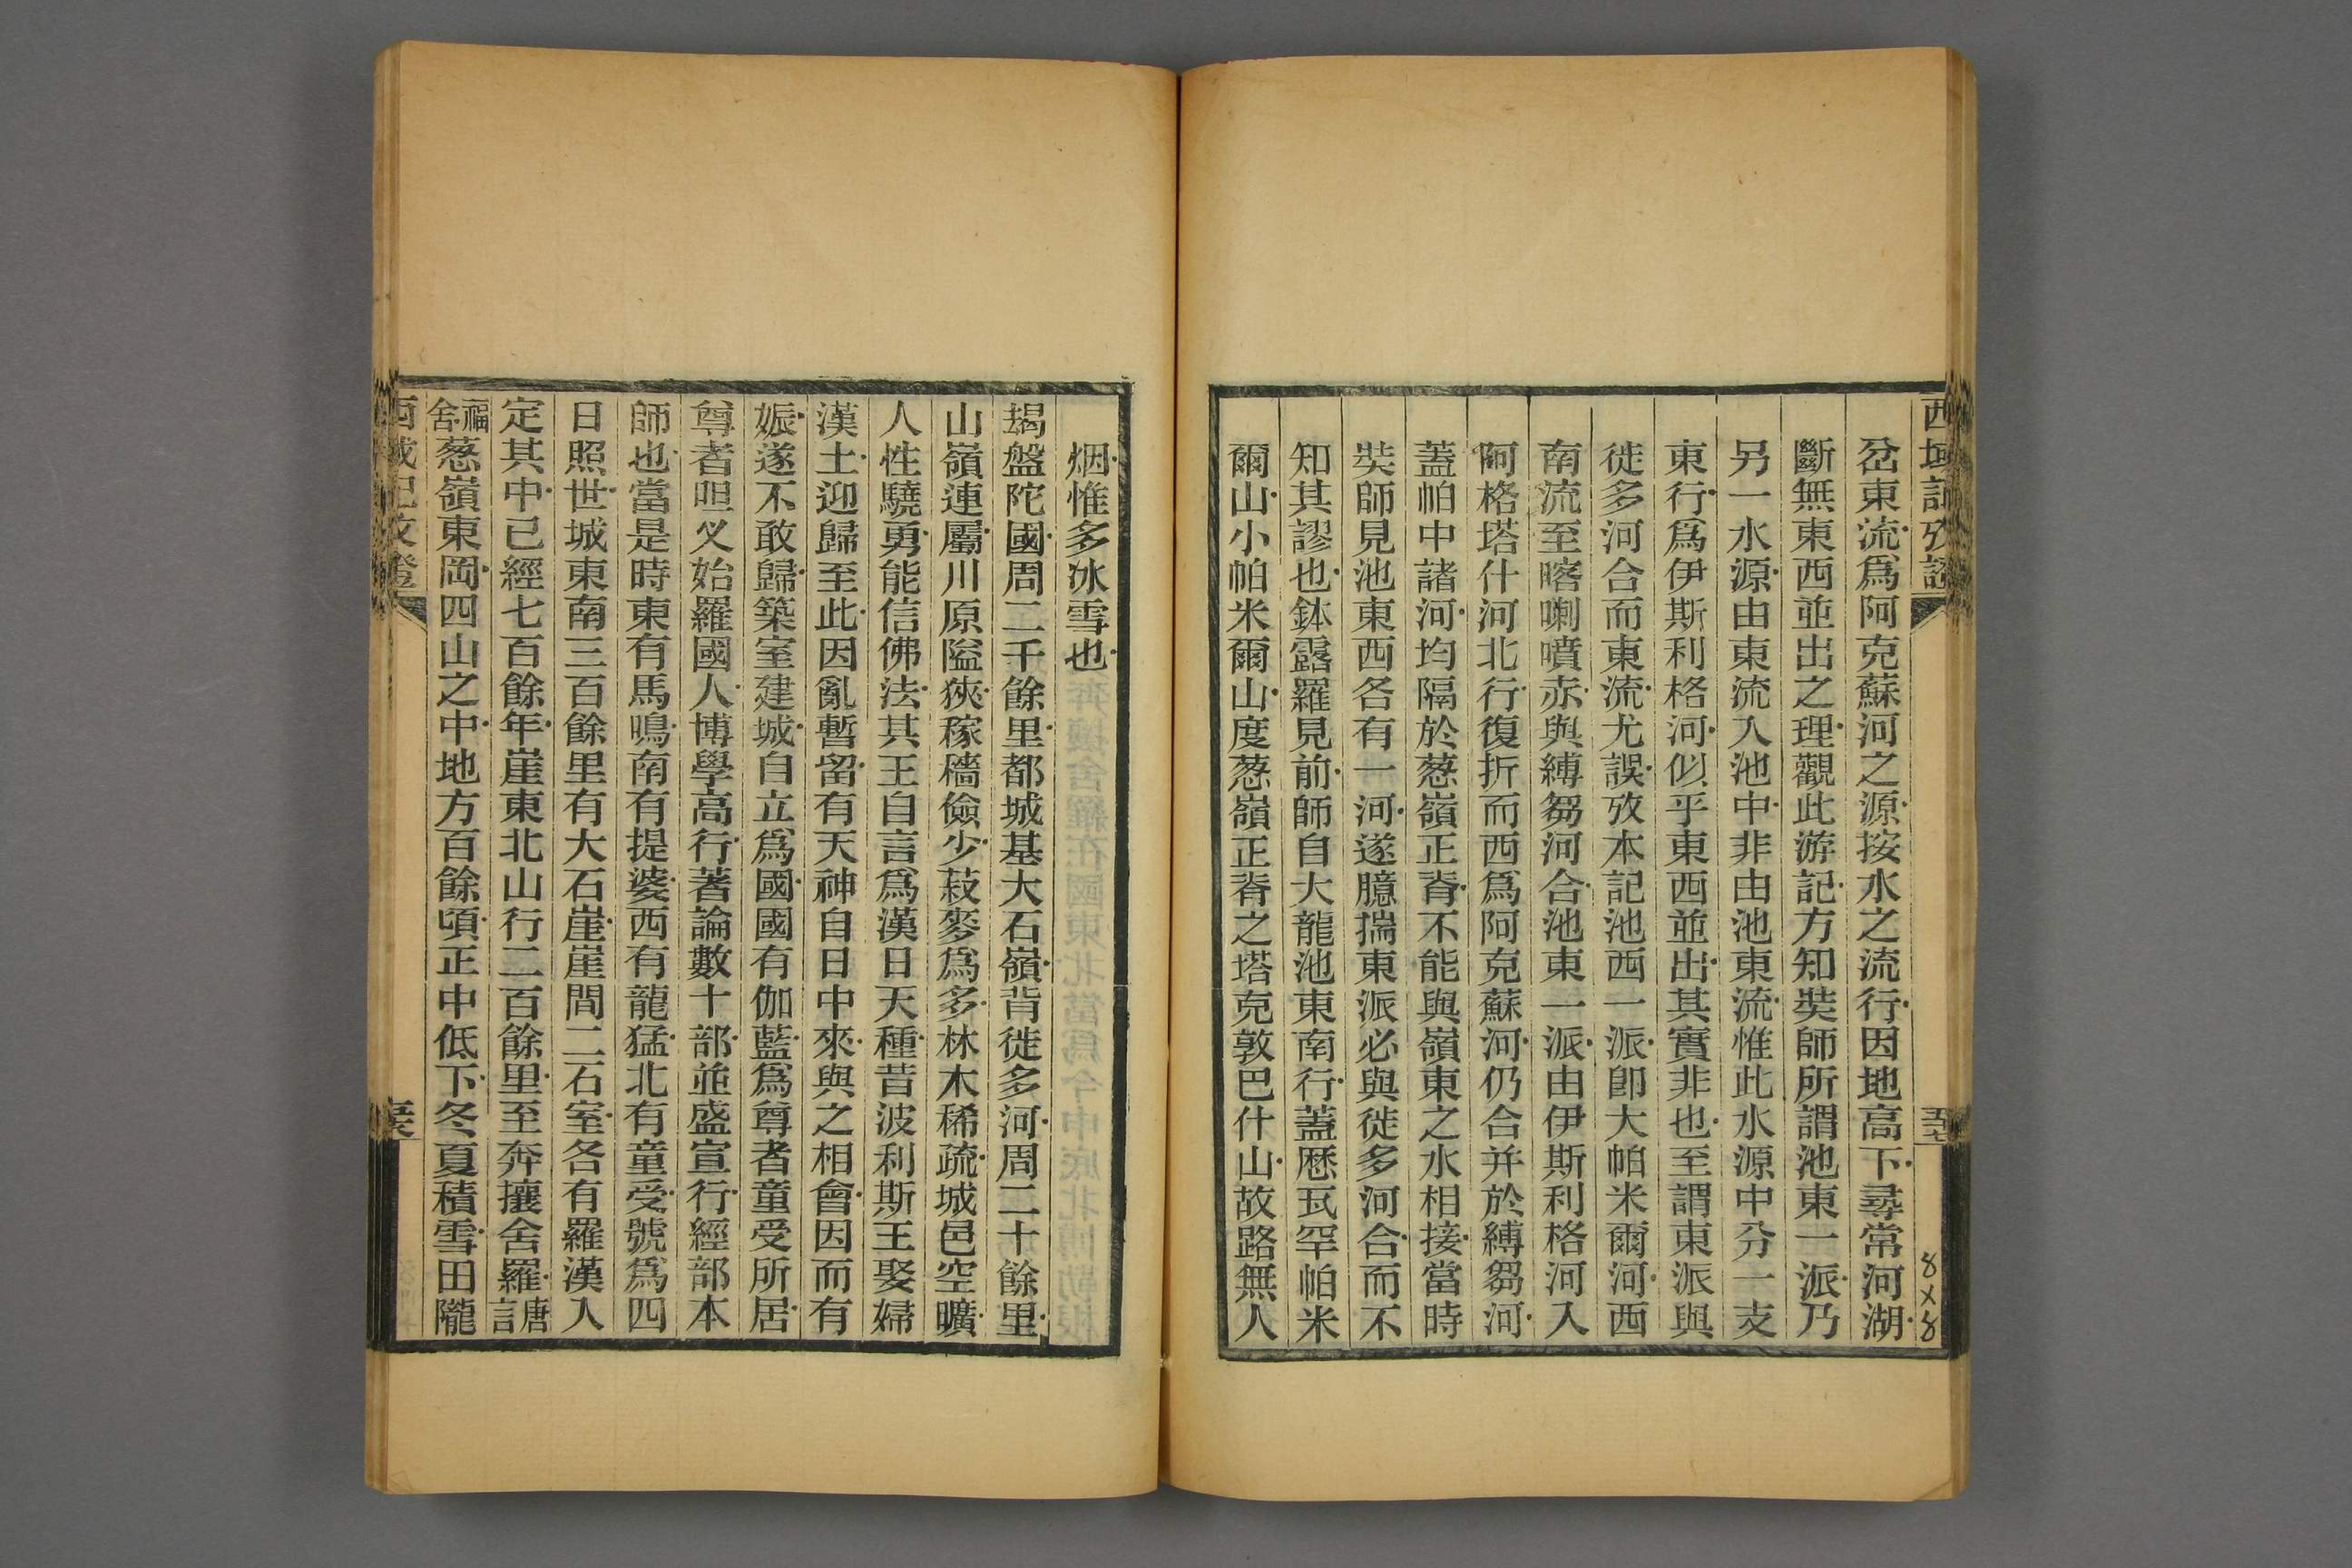 西域記攷證
五七
8×8
岔東流爲阿克蘇河之源按水之流行因地高下尋常河湖
斷無東西並出之理觀此游記方知奘師所謂池東一派乃
另一水源由東流入池中非由池東流惟此水源中分一支
東行爲伊斯利格河似乎東西並出其實非也至謂東派與
徙多河合而東流尤誤攷本記池西一派卽大帕米爾河西
南流至喀喇噴赤與縛芻河合池東一派由伊斯利格河入
阿格塔什河北行復折而西爲阿克蘇河仍合并於縛芻河
蓋帕中諸河均隔於葱嶺正脊不能與嶺東之水相接當時
奘師見池東西各有一河遂臆揣東派必與徙多河合而不
知其謬也鉢露羅見前師自大龍池東南行蓋歷瓦罕帕米
爾山小帕米爾山度葱嶺正脊之塔克敦巴什山故路無人
烟惟多冰雪也
朅盤陀國周二千餘里都城基大石嶺背徙多河周二十餘里
山嶺連屬川原隘狹稼穡儉少菽麥爲多林木稀疏城邑空曠
人性驍勇能信佛法其王自言爲漢日天種昔波利斯王娶婦
漢土迎歸至此因亂暫留有天神自日中來與之相會因而有
娠遂不敢歸築室建城自立爲國國有伽藍爲尊者童受所居
尊者呾叉始羅國人博學高行著論數十部並盛宣行經部本
師也當是時東有馬鳴南有提婆西有龍猛北有童受號爲四
日照世城東南三百餘里有大石崖崖間二石室各有羅漢入
定其中已經七百餘年崖東北山行二百餘里至奔攘舍羅唐言
福舍葱嶺東岡四山之中地方百餘頃正中低下冬夏積雪田隴
西域記攷證